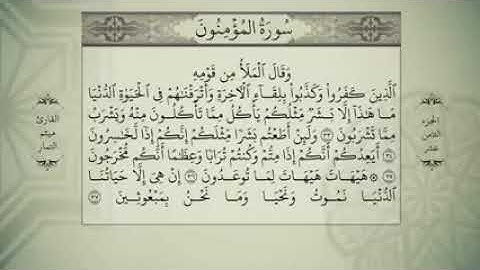 سُورَةُ المُؤْمِنُونَ
وَقَالَ الْمَلَأُ مِن قَوْمِهِ
الَّذِينَ كَفَرُوا۟ وَكَذَّبُوا۟ بِلِقَآءِ الْآخِرَةِ وَأَتْرَفْنَٰهُمْ فِى الْحَيَوٰةِ الدُّنْيَا
مَا هَٰذَآ إِلَّا بَشَرٌ مِّثْلُكُمْ يَأْكُلُ مِمَّا تَأْكُلُونَ مِنْهُ وَيَشْرَبُ
مِمَّا تَشْرَبُونَ ٣٣ وَلَئِنْ أَطَعْتُم بَشَرًا مِّثْلَكُمْ إِنَّكُمْ إِذًا لَّخَٰسِرُونَ
٣٤ أَيَعِدُكُمْ أَنَّكُمْ إِذَا مِتُّمْ وَكُنتُمْ تُرَابًا وَعِظَٰمًا أَنَّكُم مُّخْرَجُونَ
٣٥ ۞ هَيْهَاتَ هَيْهَاتَ لِمَا تُوعَدُونَ ٣٦ إِنْ هِىَ إِلَّا حَيَاتُنَا
الدُّنْيَا نَمُوتُ وَنَحْيَا وَمَا نَحْنُ بِمَبْعُوثِينَ ٣٧
الجزء
الثامن
عشر
القارئ
ميثم
التمار